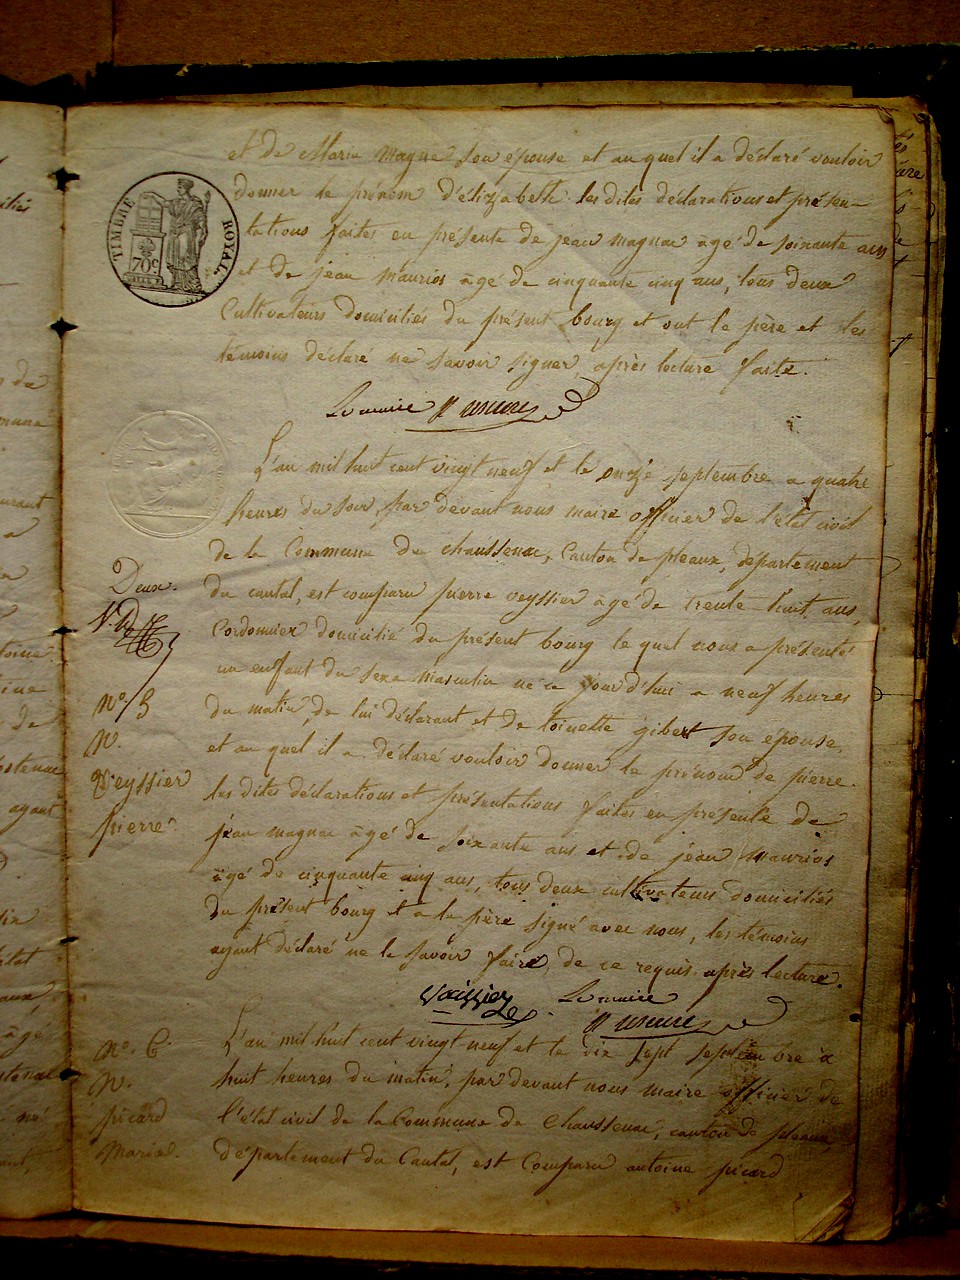 et de Marie Magne son épouse et au quel il a déclaré vouloir
donner le prénom d'élizabeth les dites déclarations et présen-
tations faites en présence de jean magnac âgé de soixante ans
et de jean Maurios âgé de cinquante cinq ans, tous deux
Cultivateurs domiciliés du présent bourg et ont le père et les
témoins déclaré ne savoir signer, après lecture faite.
TIMBRE ROYAL
70c
Le maire
L'an mil huit cent vingt neuf et le onze septembre a quatre
heures du soir, par devant nous maire officier de l'état civil
de la Commune de chaussenac, Canton de pleaux, département
du cantal, est comparu pierre veyssier âgé de trente huit ans,
Cordonnier domicilié du présent bourg le quel nous a présenté
un enfant du sexe masculin né ce jour d'hui a neuf heures
du matin, de lui déclarant et de toinette gibert son épouse,
et au quel il a déclaré vouloir donner le prénom de pierre.
les dites déclarations et présentations faites en présence de
jean magnac âgé de soixante ans et de jean Maurios
âgé de cinquante cinq ans, tous deux cultivateurs domiciliés
du présent bourg et a le père signé avec nous, les témoins
ayant déclaré ne le savoir faire, de ce requis, après lecture.
Deux.
No. 5
N.
Veyssier
pierre
Vaissier Le maire
L'an mil huit cent vingt neuf et le dix sept septembre à
huit heures du matin, par devant nous maire officier de
l'état civil de la Commune de Chaussenac, canton de pleaux,
département du Cantal, est Comparu antoine picard
No. 6.
N.
picard
Marie.